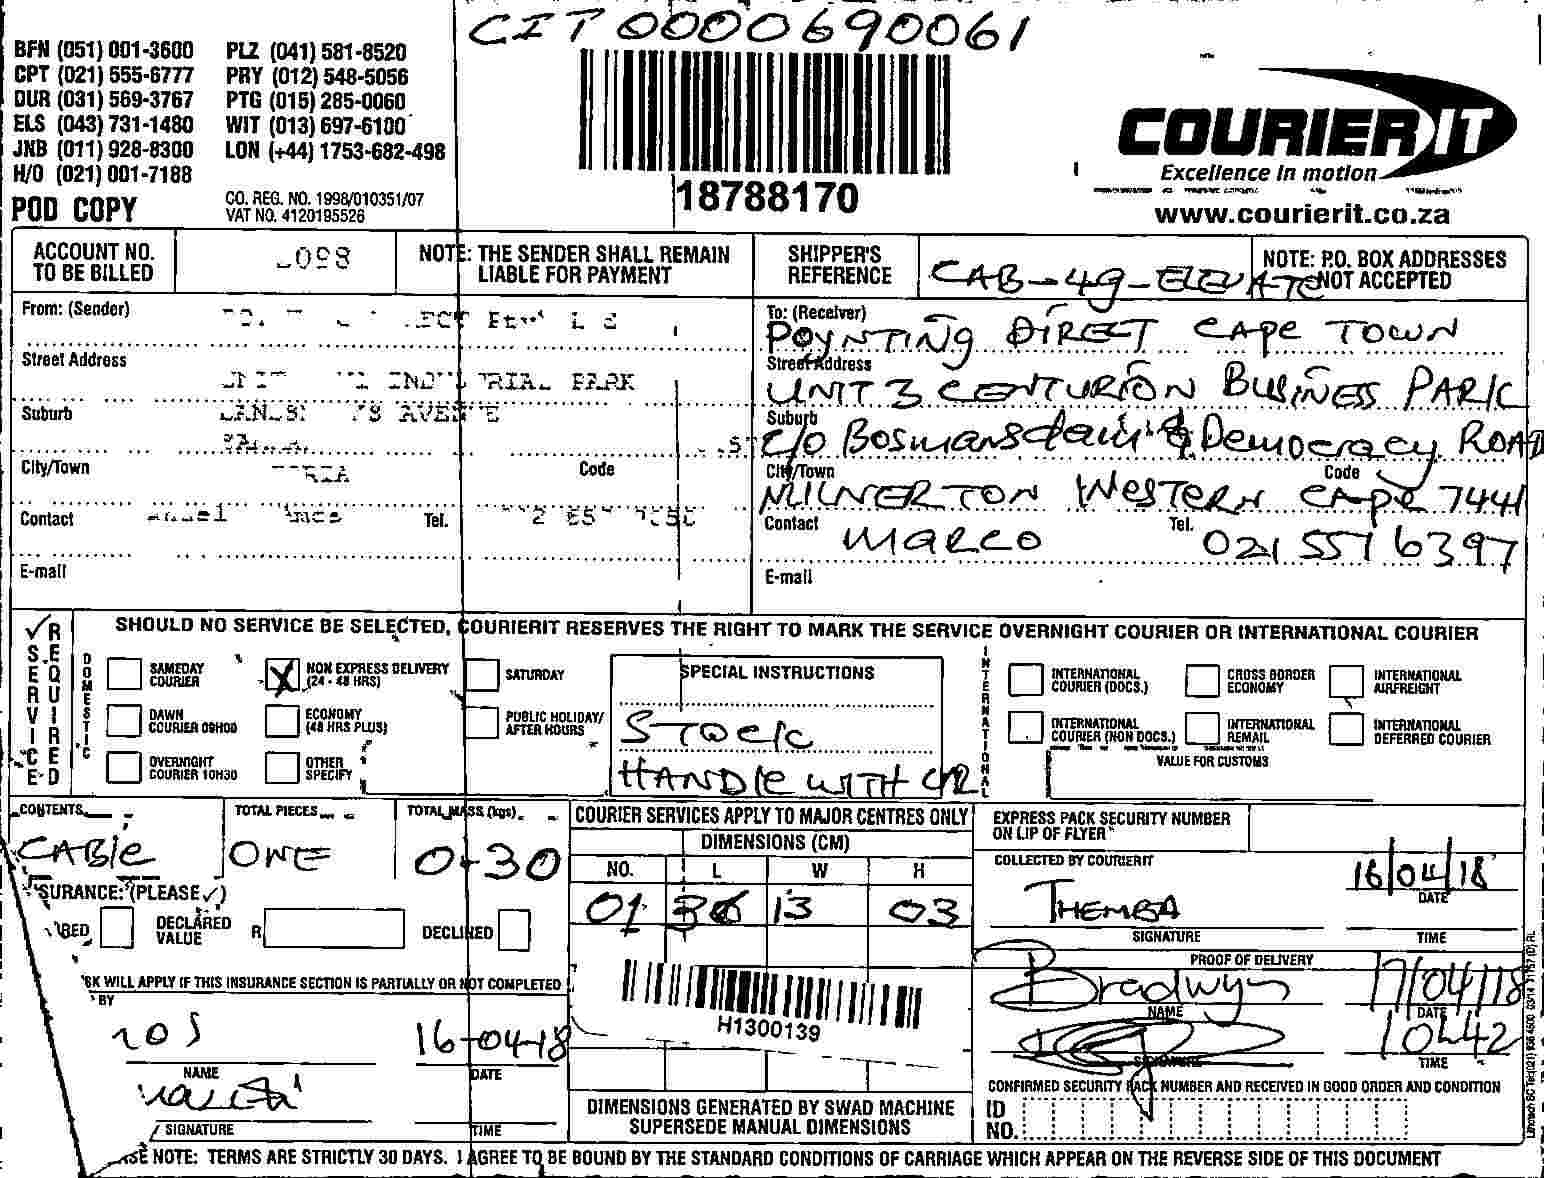 CIT0000690061
BFN (051) 001-3600 PLZ (041) 581-8520
CPT (021) 555-6777 PRY (012) 548-5056
DUR (031) 569-3767 PTG (015) 285-0060
ELS (043) 731-1480 WIT (013) 697-6100
JNB (011) 928-8300 LON (+44) 1753-682-498
H/O (021) 001-7188
POD COPY
CO. REG. NO. 1998/010351/07
VAT NO. 4120195526
18788170
COURIER IT
Excellence in motion
www.courierit.co.za
ACCOUNT NO. TO BE BILLED
098
NOTE: THE SENDER SHALL REMAIN LIABLE FOR PAYMENT
SHIPPER'S REFERENCE
CAB-4G-ELEVATE
NOTE: P.O. BOX ADDRESSES NOT ACCEPTED
From: (Sender)
Street Address
PARK
Suburb
AVENUE
City/Town
Code
Contact
Tel.
E-mail
To: (Receiver)
POYNTING DIRECT CAPE TOWN
Street Address
UNIT 3 CENTURION BUSINESS PARK
Suburb
c/o Bosmansdam & Democracy ROAD
City/Town
Code
MILNERTON WESTERN CAPE 7441
Contact
MARCO
Tel.
021 551 6397
E-mail
SERVICE REQUIRED
SHOULD NO SERVICE BE SELECTED, COURIERIT RESERVES THE RIGHT TO MARK THE SERVICE OVERNIGHT COURIER OR INTERNATIONAL COURIER
DOMESTIC
SAMEDAY COURIER
X NON EXPRESS DELIVERY (24 - 48 HRS)
SATURDAY
DAWN COURIER 09H00
ECONOMY (48 HRS PLUS)
PUBLIC HOLIDAY/ AFTER HOURS
OVERNIGHT COURIER 10H30
OTHER SPECIFY
SPECIAL INSTRUCTIONS
STOCK
HANDLE WITH
INTERNATIONAL
INTERNATIONAL COURIER (DOCS.)
CROSS BORDER ECONOMY
INTERNATIONAL AIRFREIGHT
INTERNATIONAL COURIER (NON DOCS.)
INTERNATIONAL REMAIL
INTERNATIONAL DEFERRED COURIER
VALUE FOR CUSTOMS
CONTENTS
CABLE
TOTAL PIECES
ONE
TOTAL MASS (kgs)
0.30
SURANCE: (PLEASE ✓)
DECLARED VALUE R
DECLINED
WILL APPLY IF THIS INSURANCE SECTION IS PARTIALLY OR NOT COMPLETED
BY
16-04-18
NAME
DATE
SIGNATURE
TIME
COURIER SERVICES APPLY TO MAJOR CENTRES ONLY
DIMENSIONS (CM)
NO. L W H
01 13 03
H1300139
DIMENSIONS GENERATED BY SWAD MACHINE
SUPERSEDE MANUAL DIMENSIONS
EXPRESS PACK SECURITY NUMBER
ON LIP OF FLYER
COLLECTED BY COURIERIT
THEMBA
SIGNATURE
16/04/18
DATE
TIME
PROOF OF DELIVERY
Bradwyn
NAME
17/04/18
DATE
SIGNATURE
10h42
TIME
CONFIRMED SECURITY PACK NUMBER AND RECEIVED IN GOOD ORDER AND CONDITION
ID NO.
NOTE: TERMS ARE STRICTLY 30 DAYS. I AGREE TO BE BOUND BY THE STANDARD CONDITIONS OF CARRIAGE WHICH APPEAR ON THE REVERSE SIDE OF THIS DOCUMENT